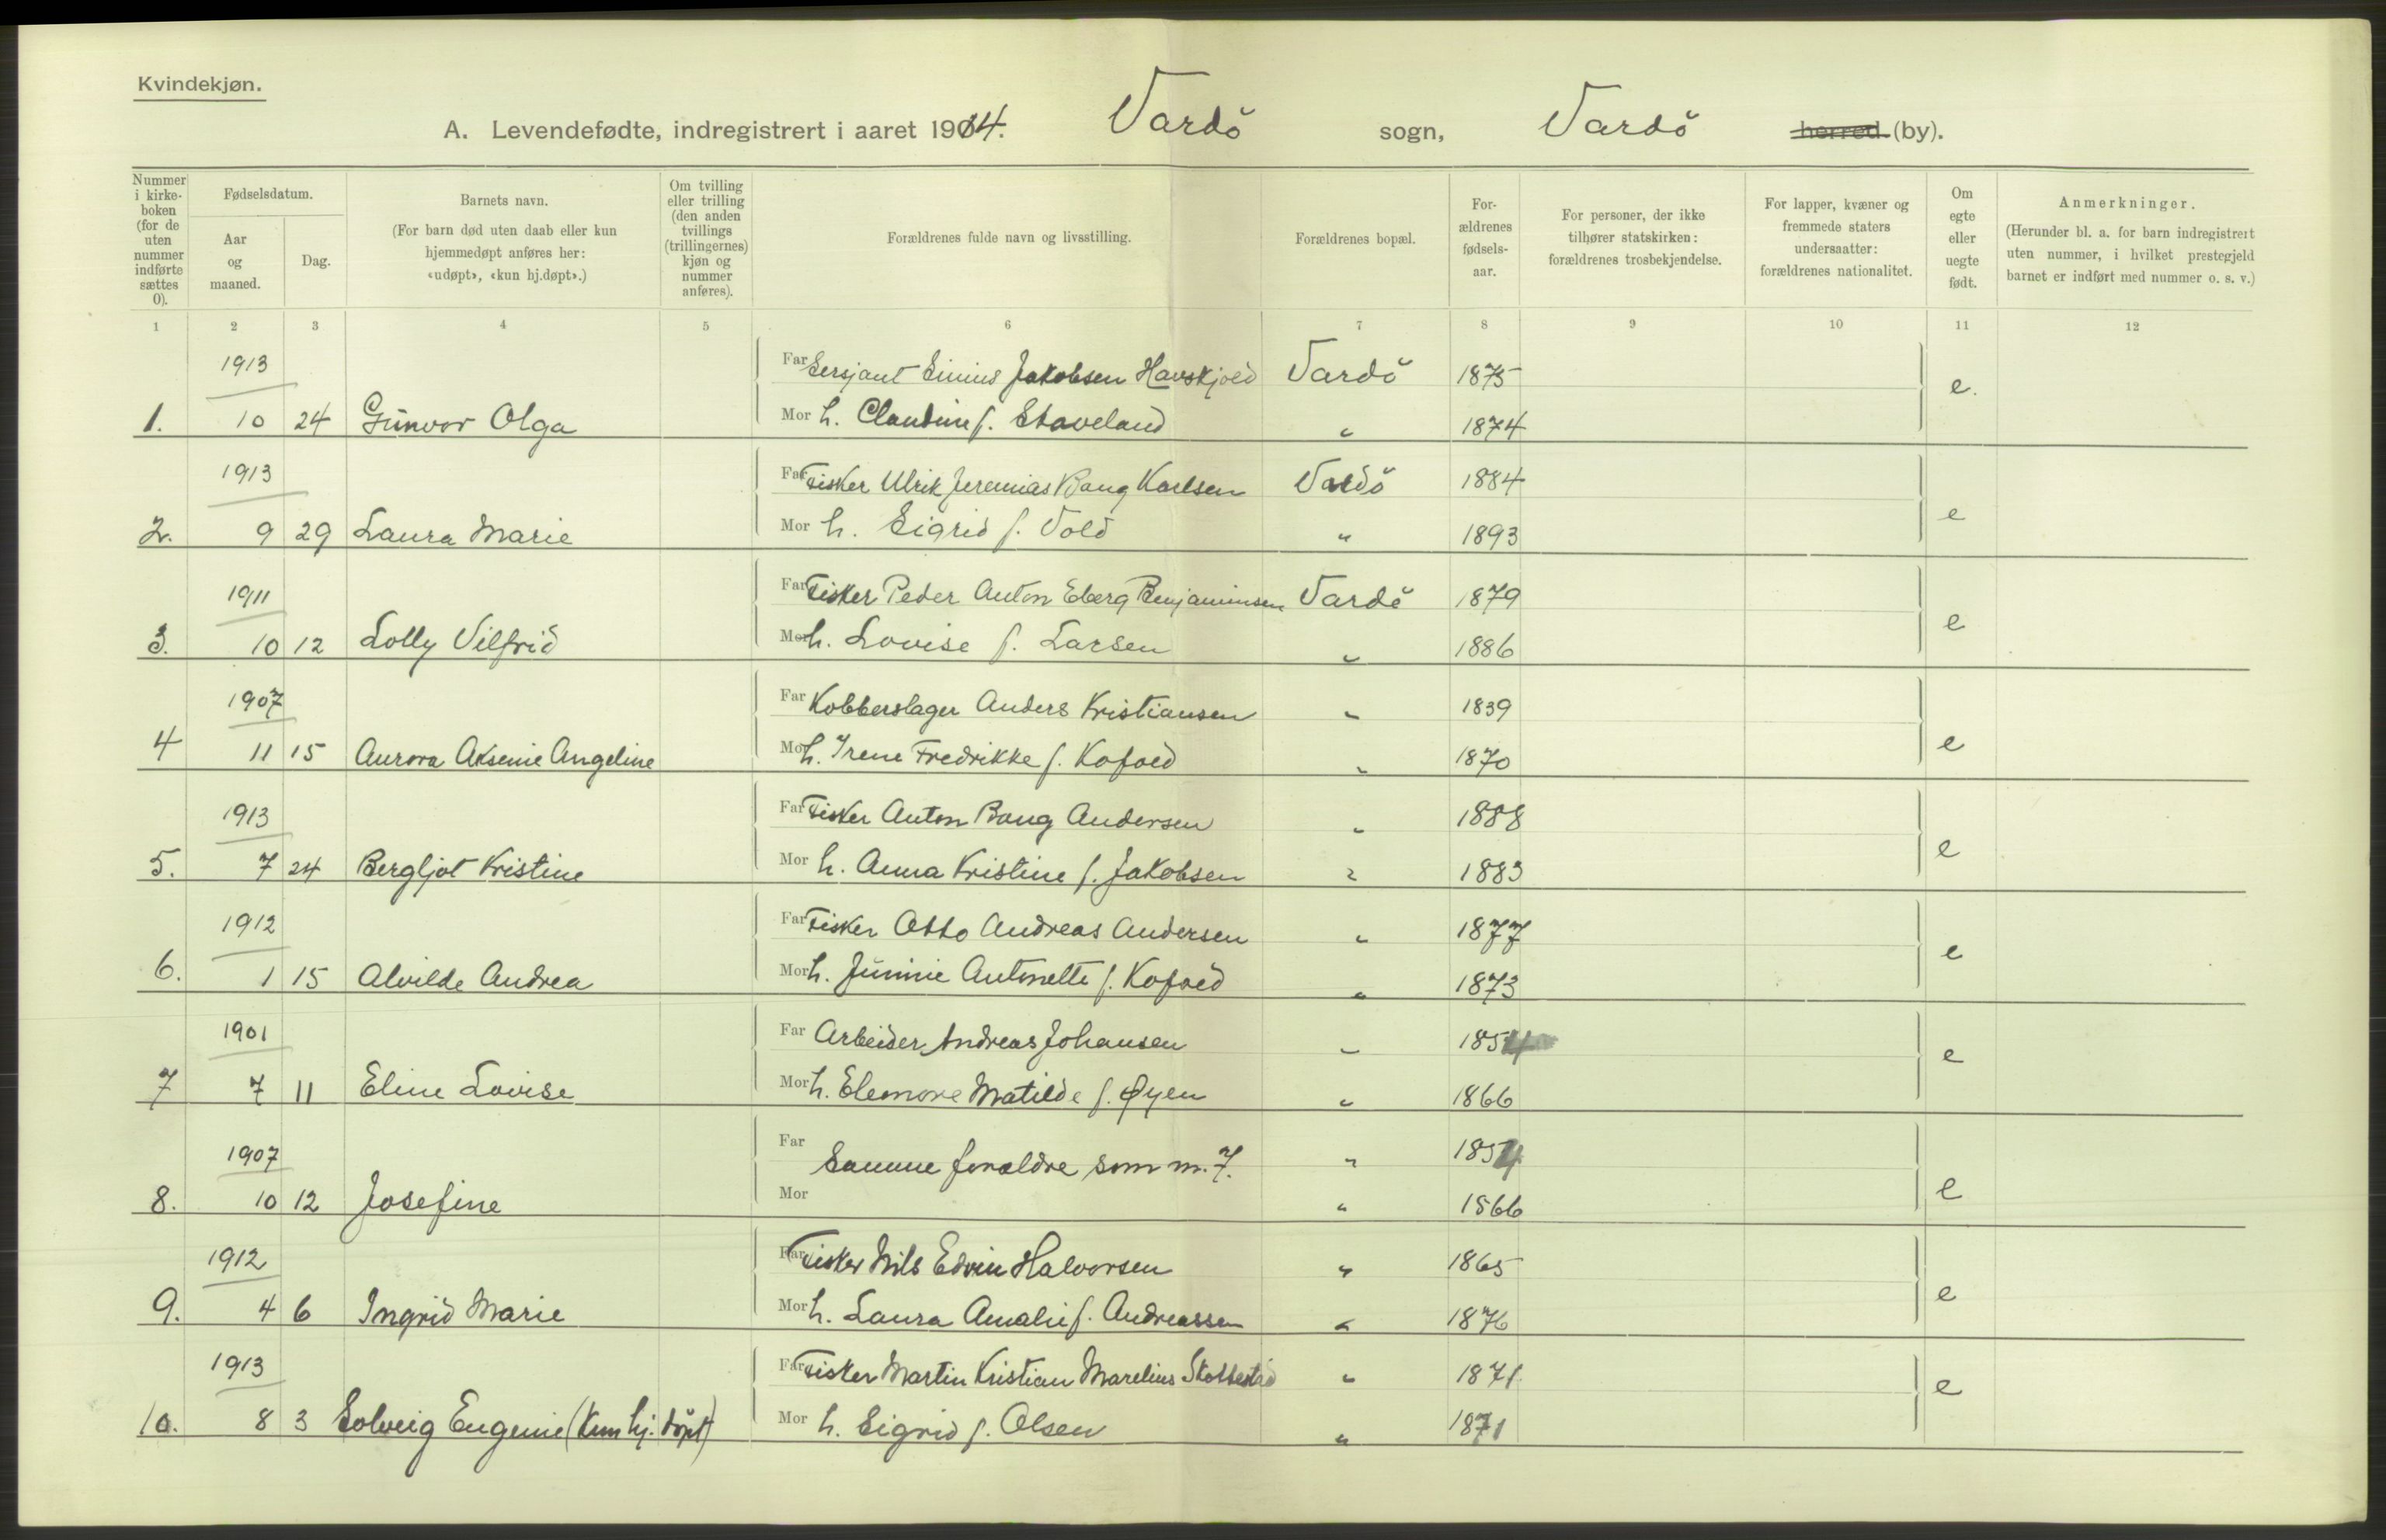 Kvindekjøn.
A. Levendefødte, indregistrert i aaret 1914. Vardö sogn, Vardö herred (by).
Nummer i kirkeboken (for de uten nummer indførte sættes 0).
Fødselsdatum.
Aar og maaned.
Dag.
Barnets navn.
(For barn død uten daab eller kun hjemmedøpt anføres her: «udøpt», «kun hj.døpt».)
Om tvilling eller trilling (den anden tvillings (trillingernes) kjøn og nummer anføres).
Forældrenes fulde navn og livsstilling.
Forældrenes bopæl.
Forældrenes fødselsaar.
For personer, der ikke tilhører statskirken: forældrenes trosbekjendelse.
For lapper, kvæner og fremmede staters undersaatter: forældrenes nationalitet.
Om egte eller uegte født.
Anmerkninger.
(Herunder bl. a. for barn indregistrert uten nummer, i hvilket prestegjeld barnet er indført med nummer o. s. v.)
1 2 3 4 5 6 7 8 9 10 11 12
1913 Far Sersjant Jakobsen Havskjold Vardö 1875 e.
1. 10 24 Gunvor Olga Mor h. Claudine f. Staveland " 1874
1913 Far Fisker Ulrik Jeremias Bang Karlsen Vardö 1884 e
2. 9 29 Laura Marie Mor h. Sigrid f. Vold " 1893
1911 Far Fisker Peder Anton Eberg Benjaminsen Vardö 1879 e
3. 10 12 Lolly Vilfrid Mor h. Lovise f. Larsen " 1886
1907 Far Kobberslager Anders Kristiansen " 1839 e
4 11 15 Aurora Aksenie Angeline Mor h. Irene Fredrikke f. Kofoed " 1870
1913 Far Fisker Anton Bang Andersen " 1888 e
5. 7 24 Bergljot Kristine Mor h. Anna Kristine f. Jakobsen " 1883
1912 Far Fisker Otto Andreas Andersen " 1877 e
6. 1 15 Alvilde Andrea Mor h. Jünnie Antonette f. Kofoed " 1873
1901 Far Arbeider Andreas Johansen " 1854 e
7 7 11 Eline Lovise Mor h. Eleonore Matilde f. Øyen " 1866
1907 Far Samme forældre som nr. 7. " 1854 e
8. 10 12 Josefine Mor " 1866
1912 Far Fisker Nils Edvin Halvorsen " 1865 e
9. 4 6 Ingrid Marie Mor h. Laura Amalie f. Andreassen " 1876
1913 Far Fisker Martin Kristian Marelius " 1871 e
10. 8 3 Solveig Eugenie (Kun hj. döpt) Mor h. Sigrid f. Olsen " 1871